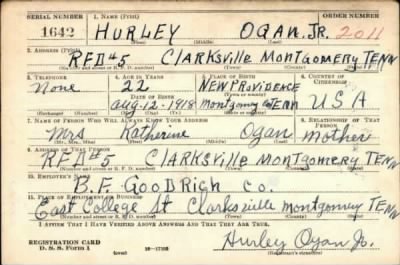 SERIAL NUMBER 1. NAME (Print) ORDER NUMBER
1642 HURLEY OGAN, JR. 2011
(First) (Middle) (Last)
2. ADDRESS (Print)
RFD#5 Clarksville Montgomery TENN
(Number and street or R. F. D. number) (Town) (County) (State)
3. TELEPHONE 4. AGE IN YEARS 5. PLACE OF BIRTH 6. COUNTRY OF CITIZENSHIP
None 22 NEW PROVIDENCE
DATE OF BIRTH
Aug-12-1918 Montgomery Co TENN U S A
7. NAME OF PERSON WHO WILL ALWAYS KNOW YOUR ADDRESS 8. RELATIONSHIP OF THAT PERSON
Mrs Katherine Ogan Mother
9. ADDRESS OF THAT PERSON
RFD#5 Clarksville Montgomery TENN
(Number and street or R. F. D. number) (Town) (County) (State)
10. EMPLOYER'S NAME
B.F. GOODRICH CO.
11. PLACE OF EMPLOYMENT OR BUSINESS
East College St Clarksville Montgomery TENN
(Number and street or R. F. D. number) (Town) (County) (State)
I AFFIRM THAT I HAVE VERIFIED ABOVE ANSWERS AND THAT THEY ARE TRUE.
REGISTRATION CARD
D. S. S. Form 1 (over) Hurley Ogan Jr.
(Registrant's signature)